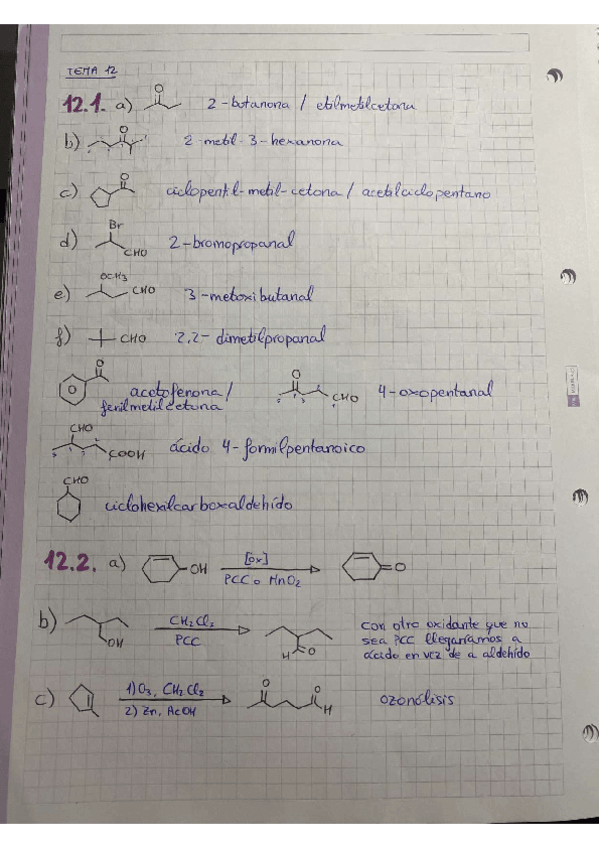 TEMA 12
12.1. a) O 2-butanona / etilmetilcetona
b) O 2-metil-3-hexanona
c) O ciclopentil-metil-cetona / acetilciclopentano
d) Br CHO 2-bromopropanal
e) OCH3 CHO 3-metoxibutanal
f) CHO 2,2-dimetilpropanal
O acetofenona / O CHO 4-oxopentanal
fenilmetilcetona
CHO COOH ácido 4-formilpentanoico
CHO
ciclohexilcarboxaldehído
12.2. a) OH [ox] O
PCC o MnO2
b) OH CH2Cl2 H O con otro oxidante que no
PCC sea PCC llegaríamos a
ácido en vez de a aldehído
c) 1) O3, CH2Cl2 O O H ozonólisis
2) Zn, AcOH